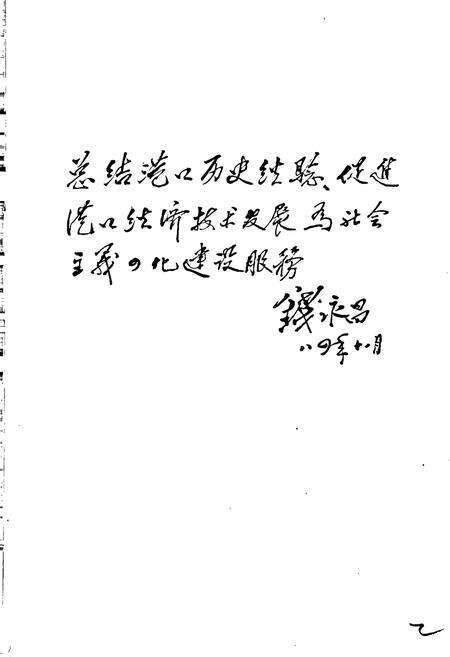 总结港口历史经验、促進
港口经济技术发展為社会
主義四化建设服務
錢永昌
八四年十八月